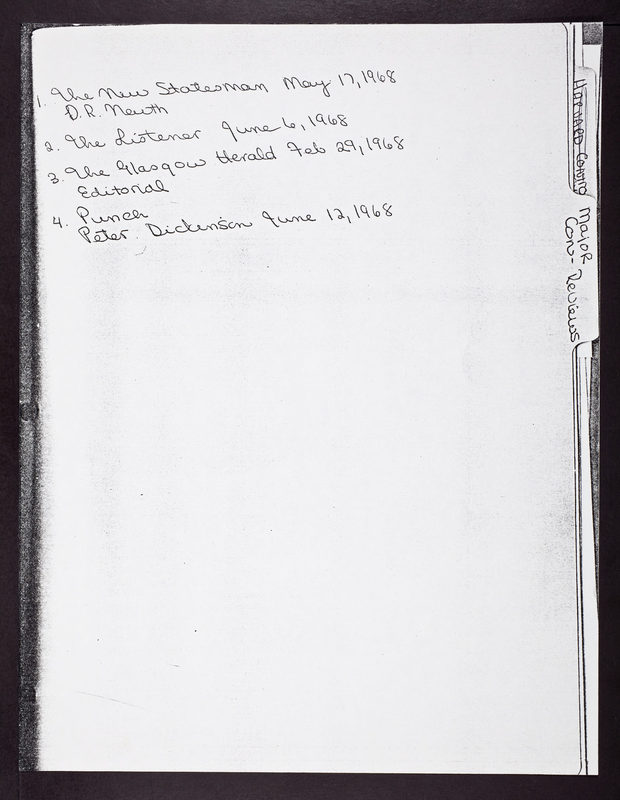 1. The New Statesman May 17, 1968
D.R. Newth
2. The Listener June 6, 1968
3. The Glasgow Herald Feb 29, 1968
Editorial
4. Punch
Peter Dickinson June 12, 1968
Major
Con- Reviews